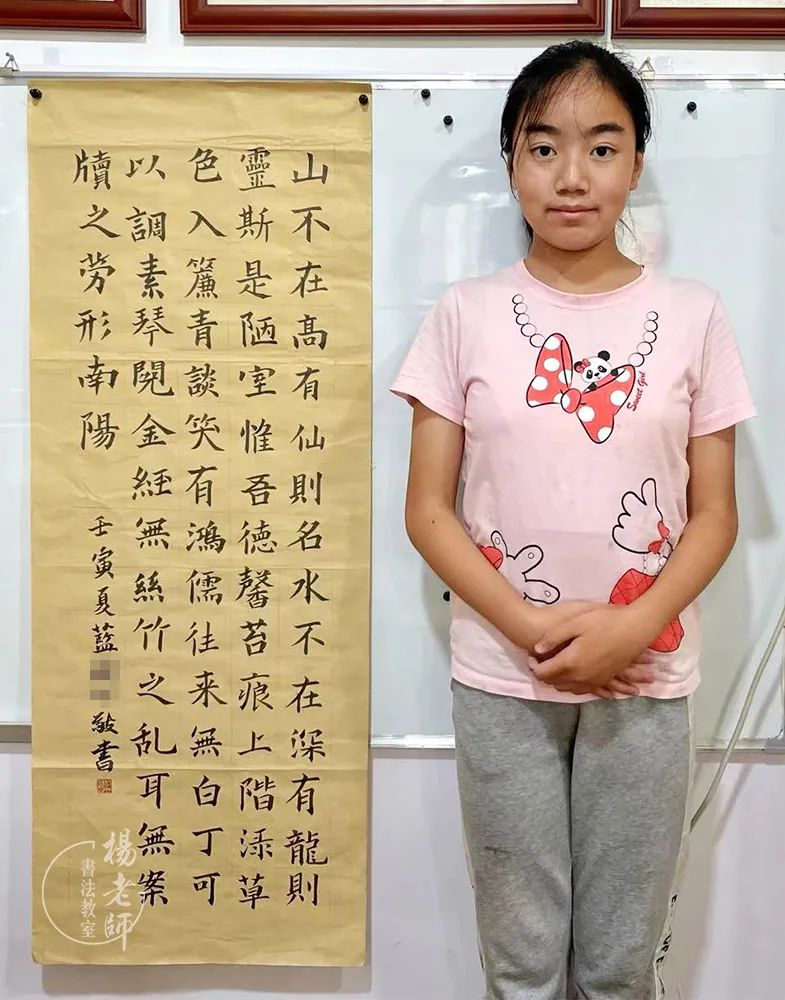 山不在髙有仙則名水不在深有龍則
靈斯是陋室惟吾德馨苔痕上階渌草
色入簾青談笑有鴻儒往来無白丁可
以調素琴閱金經無絲竹之乱耳無案
牘之勞形南陽
壬寅夏藍
敬書
楊老師
書法教室
Sweet Girl